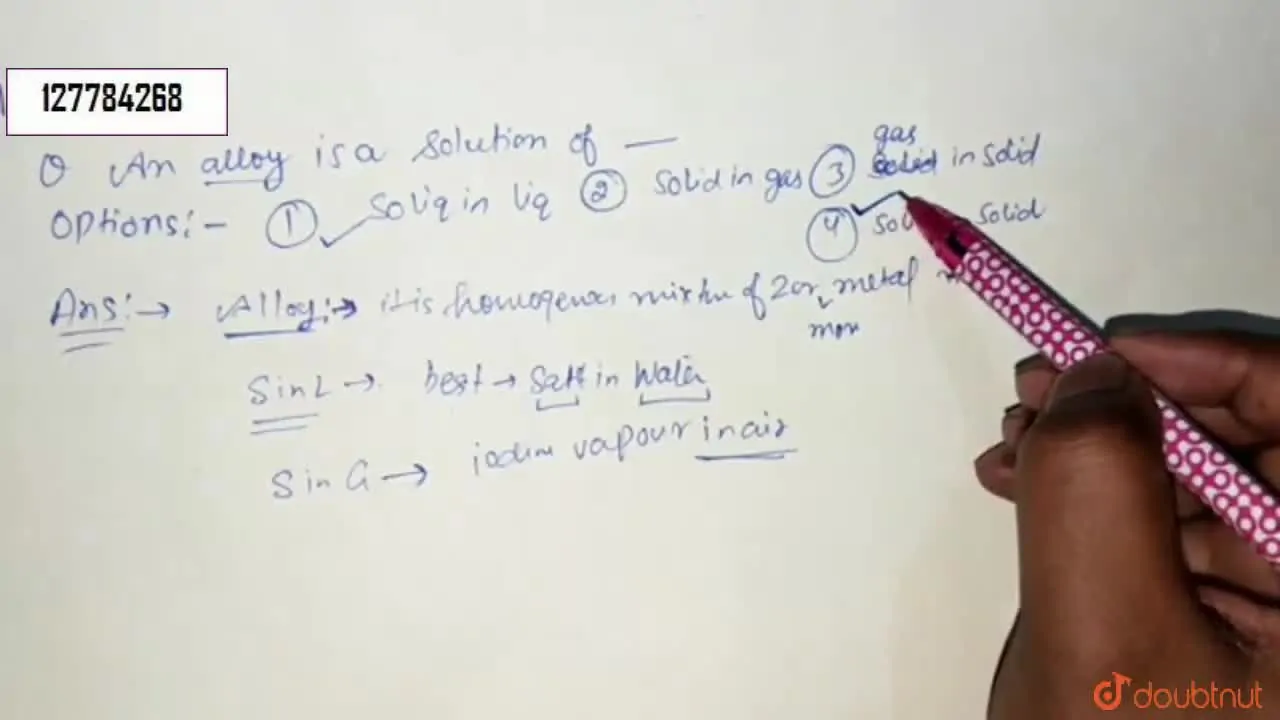 127784268
Q An alloy is a solution of —
Options:- ① Soliq in liq ② Solid in gas ③ gas in solid
④ solid
Ans:→ Alloy:→ it is homogenous mixture of 2 or more metal
S in L → best → Salt in Water
S in G → iodine vapour in air
doubtnut